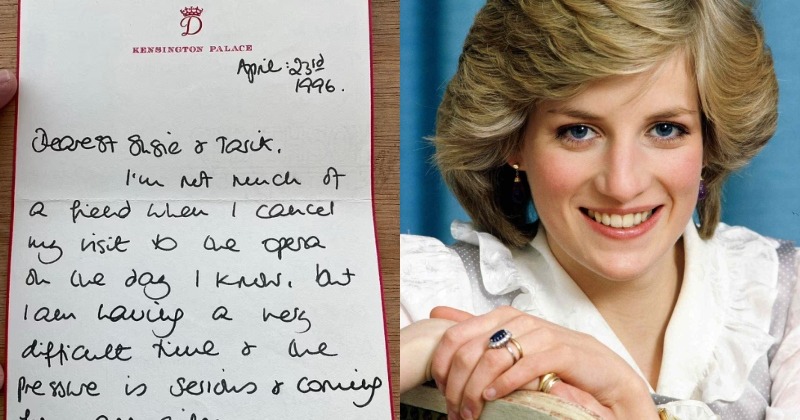 D
KENSINGTON PALACE
April: 23rd
1996.
Dearest Susie & Tarik.
I'm not much of
a friend when I cancel
my visit to the opera
on the day I know. but
I am having a very
difficult time & the
pressure is serious & coming